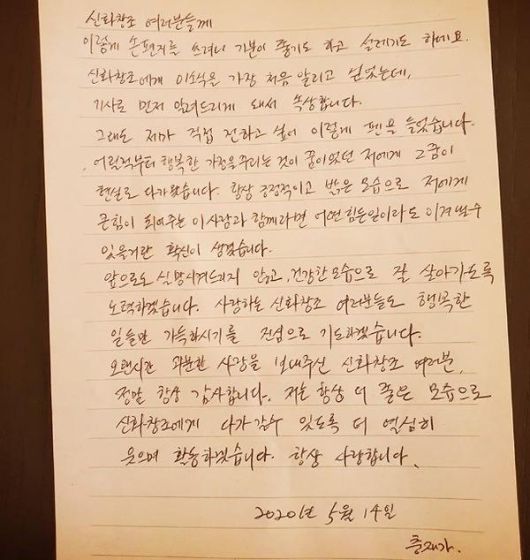 신화창조 여러분들께
이렇게 손편지를 쓰려니 기분이 좋기도 하고 설레기도 하네요.
신화창조에게 이소식을 가장 처음 알리고 싶었는데,
기사로 먼저 알려드리게 돼서 속상합니다.
그래도 제가 직접 전하고 싶어 이렇게 펜을 들었습니다.
어릴적부터 행복한 가정을꾸리는 것이 꿈이었던 저에게 그꿈이
현실로 다가왔습니다. 항상 긍정적이고 밝은 모습으로 저에게
큰힘이 되어주는 이사람과 함께라면 어떤힘든일이라도 이겨낼수
있을거란 확신이 생겼습니다.
앞으로도 실망시켜드리지 않고, 건강한모습으로 잘 살아가도록
노력하겠습니다. 사랑하는 신화창조 여러분들도 행복한
일들만 가득하시기를 진심으로 기도하겠습니다.
오랜시간 과분한 사랑을 보내주신 신화창조 여러분,
정말 항상 감사합니다. 저는 항상 더 좋은 모습으로
신화창조에게 다가갈수 있도록 더 열심히
웃으며 활동하겠습니다. 항상 사랑합니다.
2020년 5월 14일
충재가.